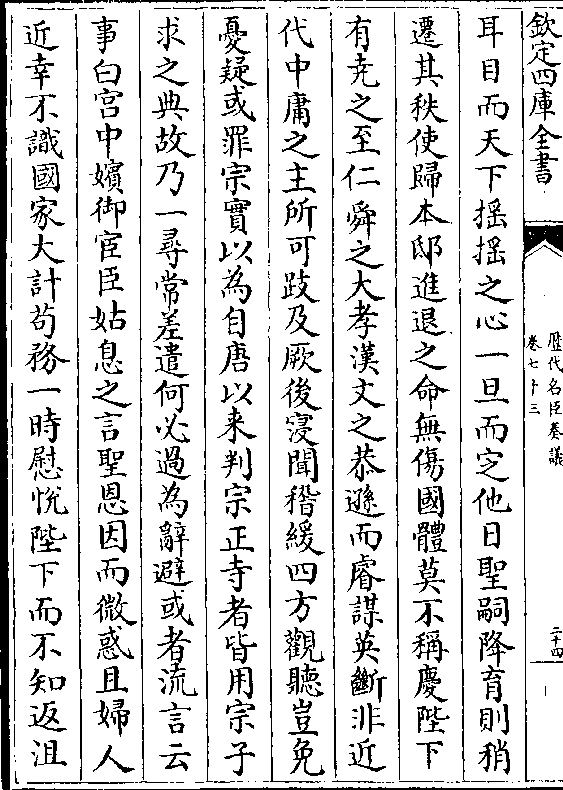 欽定四庫全書
歷代名臣奏議
卷七十三
二十四
耳目而天下揺揺之心一旦而定他日聖嗣降育則稍
遷其秩使歸本邸進退之命無傷國體莫不稱慶陛下
有尭之至仁舜之大孝漢文之恭遜而睿謀英斷非近
代中庸之主所可跂及厥後寖聞稽緩四方觀聽豈免
憂疑或罪宗實以為自唐以来判宗正寺者皆用宗子
求之典故乃一尋常差遣何必過為辭避或者流言云
事白宫中嬪御宦臣姑息之言聖恩因而微惑且婦人
近幸不識國家大計茍務一時慰悅陛下而不知返沮